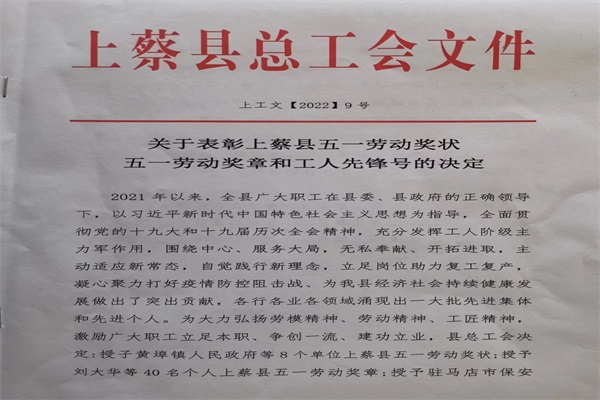 上蔡县总工会文件
上工文【2022】9号
关于表彰上蔡县五一劳动奖状
五一劳动奖章和工人先锋号的决定
2021年以来，全县广大职工在县委、县政府的正确领导
下，以习近平新时代中国特色社会主义思想为指导，全面贯
彻党的十九大和十九届历次全会精神，充分发挥工人阶级主
力军作用，围绕中心、服务大局，无私奉献、开拓进取，主
动适应新常态，自觉践行新理念，立足岗位助力复工复产，
凝心聚力打好疫情防控阻击战、为我县经济社会持续健康发
展做出了突出贡献，各行各业各领域涌现出一大批先进集体
和先进个人。为大力弘扬劳模精神、劳动精神、工匠精神，
激励广大职工立足本职、争创一流、建功立业，县总工会决
定：授予黄埠镇人民政府等8个单位上蔡县五一劳动奖状；授予
刘大华等40名个人上蔡县五一劳动奖章；授予驻马店市保安